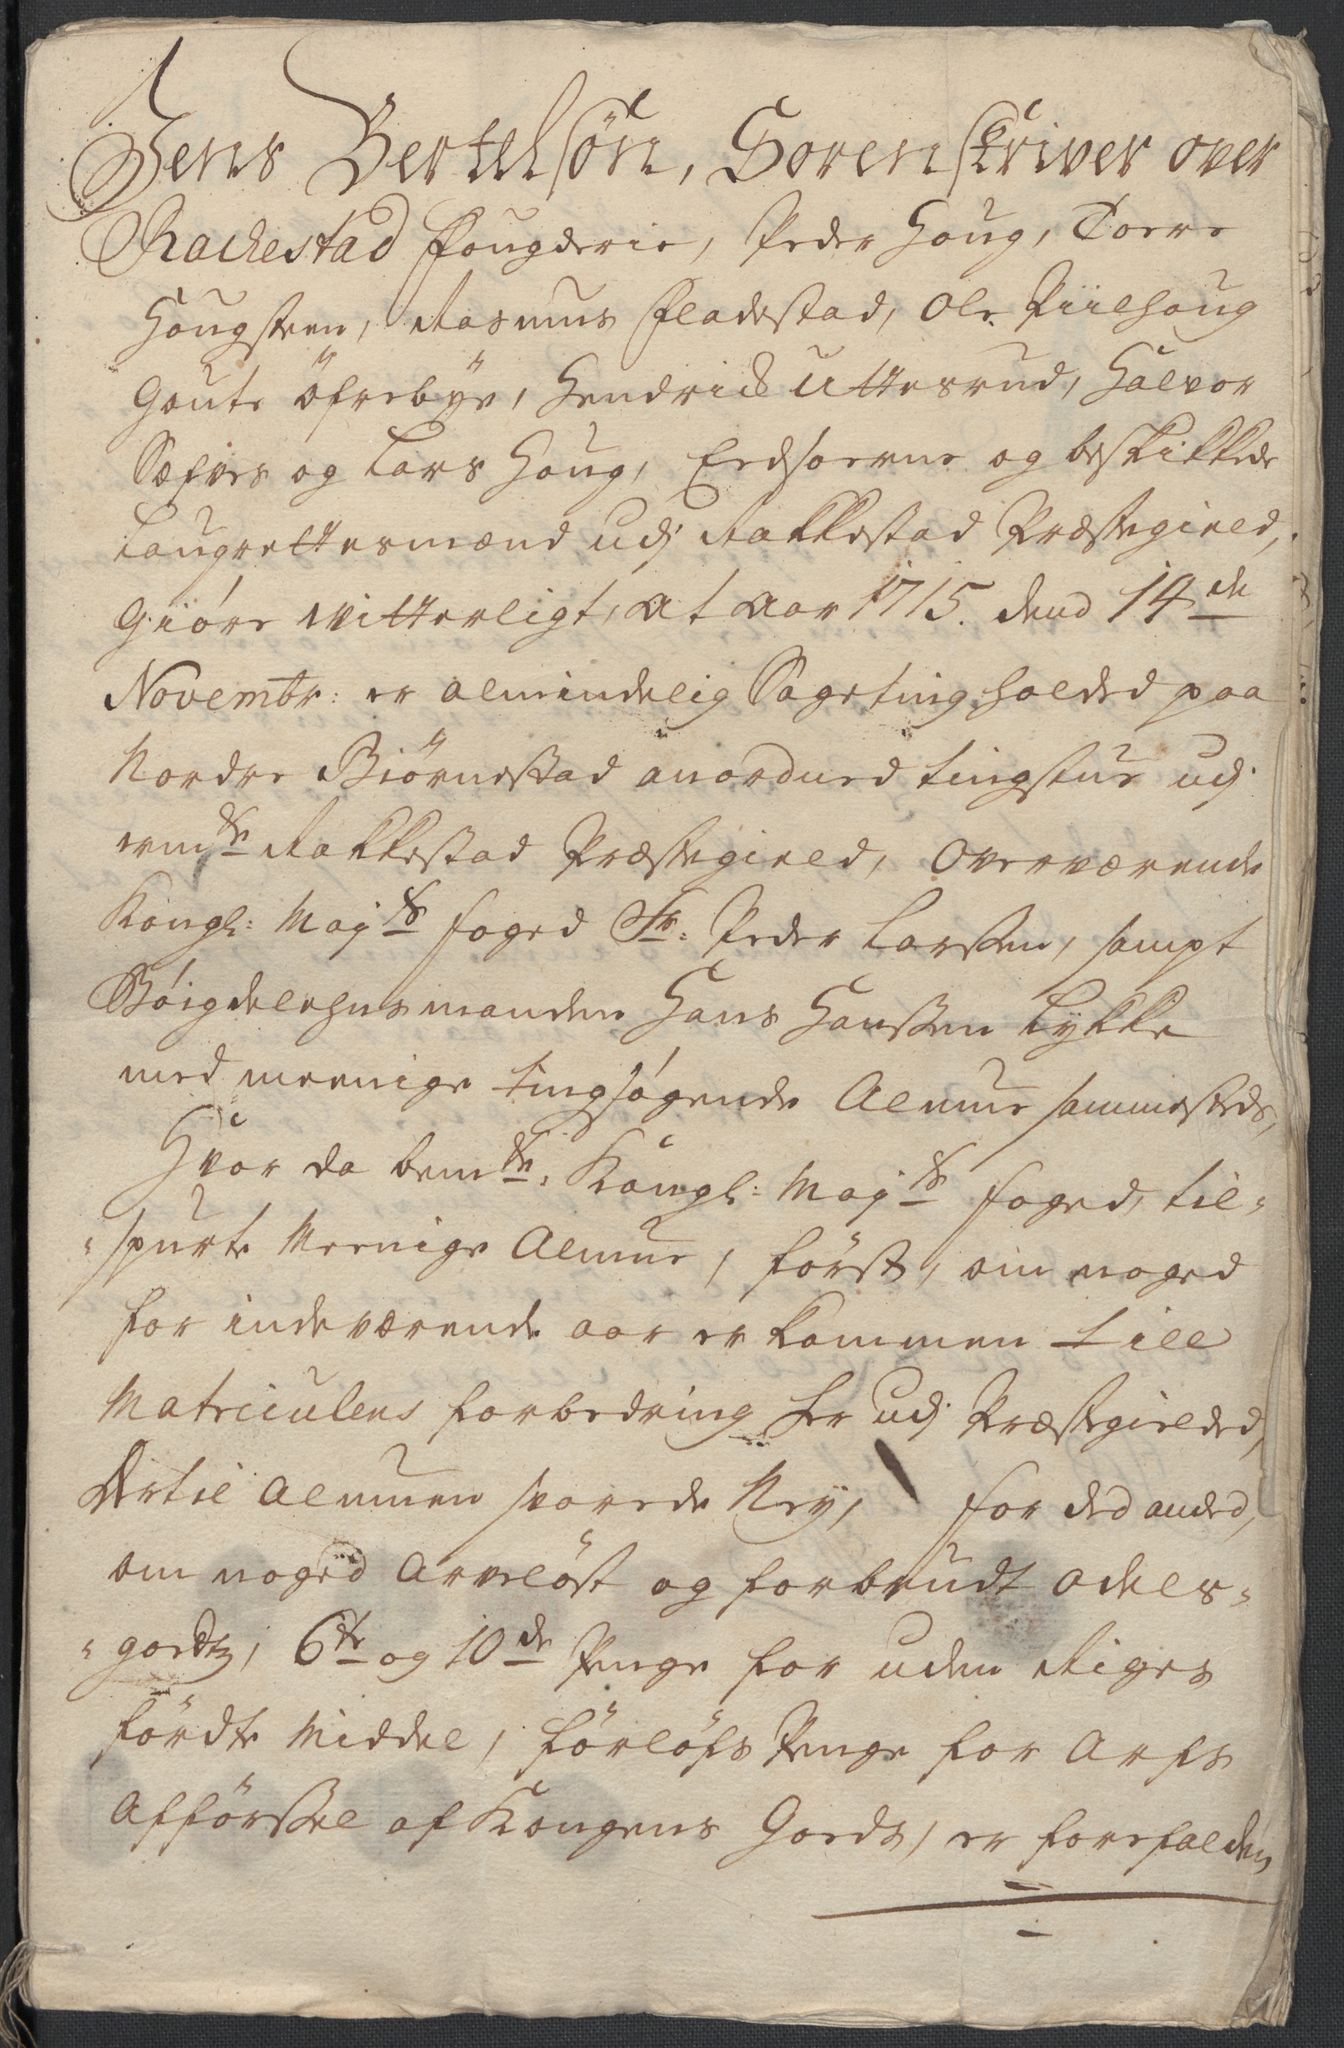 Jens Bertelsön, Sorenskriver over
Rackestad fougderie, Peder Houg, Torre
Hougsteen, Rasmus Fladestad, Ole Piilhoug
Goute Öfrebÿe, Hendrick Uttesrud, Halvor
Sæfves og Lars Houg, Eedsorne og beskikkede
Laugrettesmænd udj Rakkestad Præstegield,
Giöre vitterligt, at Aar 1715. dend 14de
Novembr: er almindelig Sageting holded paa
Nordre Biörnestad anordned tingstue udj
ermte Rakkestad Præstegield, Overværende
Kongl: Mayts foged Sr: Peder Larssen, sampt
Böigdelehnsmanden Hans Hanssen Lykke
med meenige tingsögende Almue sammesteds,
Hvor da bemte: Kongl: Mayts foged, til-
-spurte Meenige Almue, först, om noged
for indeværende aar er kommen till
Matriculens forbedring her udj Præstegielded,
Dertil Almuen svarede Neÿ, for ded anded,
om noged Arvelöst og forbrudt Odels-
-goedtz, 6te og 10de Penge for uden Riges
fördte Middel, förlöfs Penge for Arfs
Afförssel af Kongens Goeds, er forefalden,